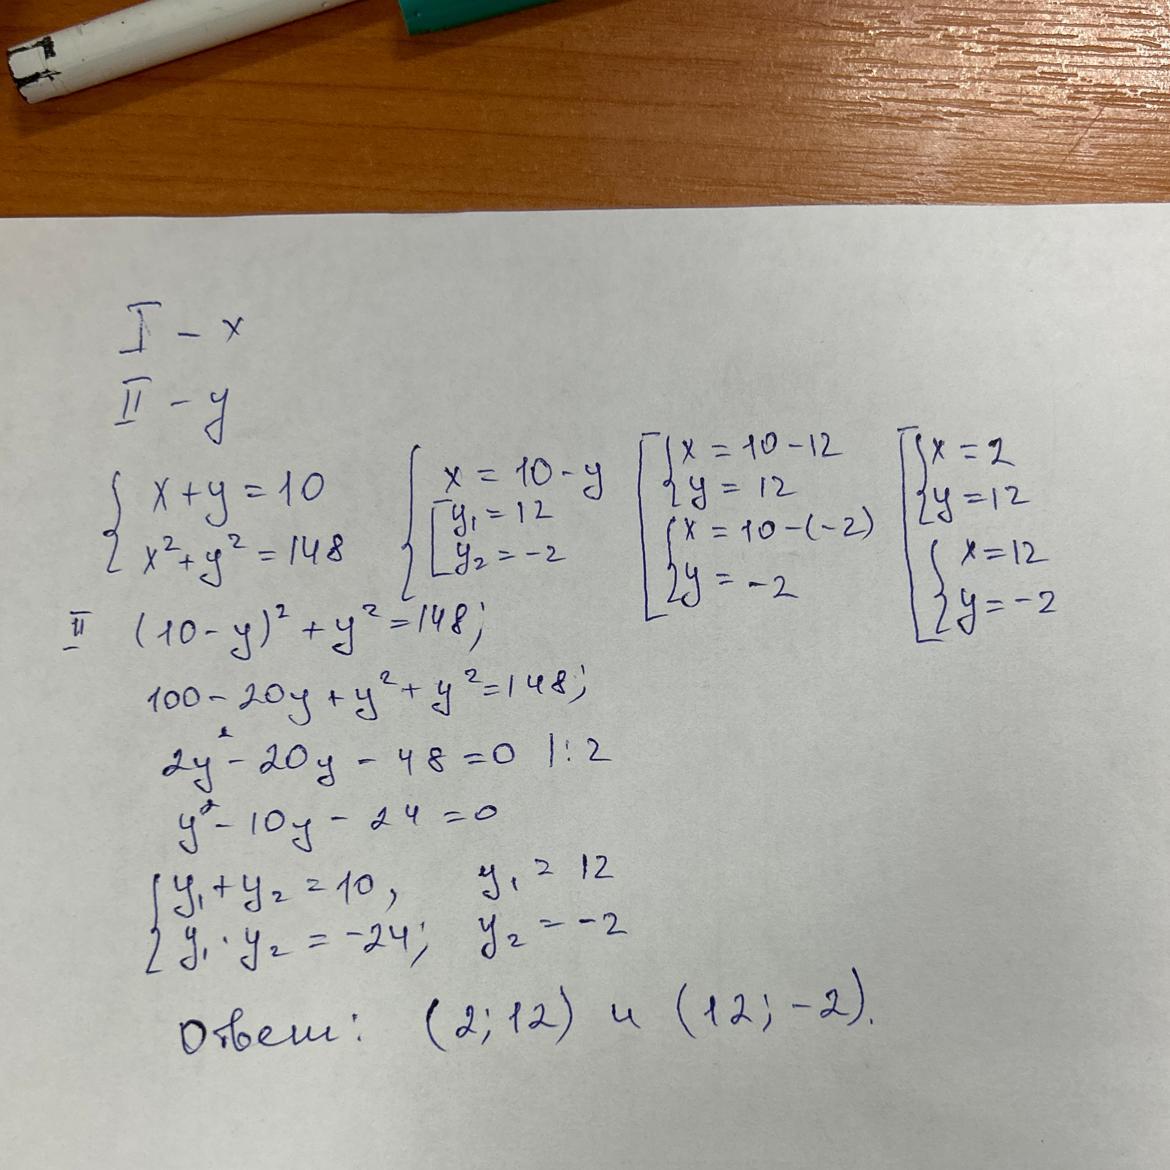 I – x
II – y
{ x + y = 10
x² + y² = 148
{ x = 10 – y
[ y₁ = 12
y₂ = –2
[ { x = 10 – 12
y = 12
{ x = 10 – (–2)
y = –2
[ { x = 2
y = 12
{ x = 12
y = –2
II (10 – y)² + y² = 148;
100 – 20y + y² + y² = 148;
2y² – 20y – 48 = 0 |: 2
y² – 10y – 24 = 0
{ y₁ + y₂ = 10, y₁ = 12
y₁ · y₂ = –24; y₂ = –2
Ответ: (2; 12) и (12; –2).